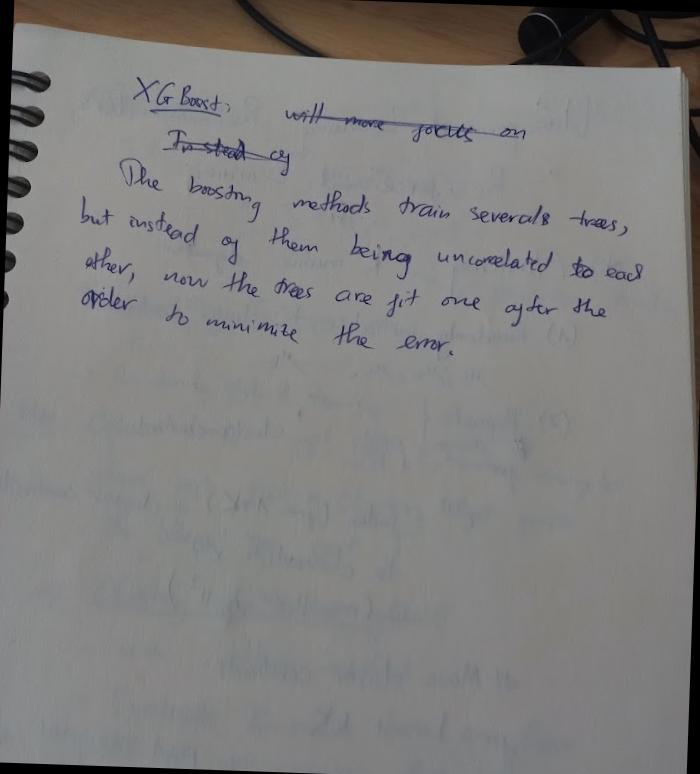 XGBoost, will more focus on
Instead of
The boosting methods train severals trees,
but instead of them being uncorrelated to each
other, now the trees are fit one after the
order to minimize the error.